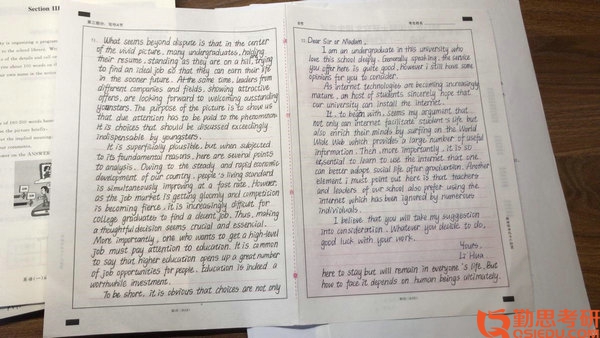 Section III
第三部分：写作A节
What seems beyond dispute is that in the center
of the vivid picture, many undergraduates, holding
their resume, standing as they are on a hill, trying
to find an ideal job so that they can earn their life
in the sooner future. At the same time, leaders from
different companies and fields, showing attractive
offers, are looking forward to welcoming oustanding
youngsters. The purpose of the picture is to show us
that due attention has to be paid to the phenomenon:
It is choices that should be discussed exceedingly
indispensable by youngsters.
It is superficially plausible, but when subjected
to its foundamental reasons, here are several points
to analysis. Owing to the steady and rapid economic
development of our country, people's living standard
is simultaneously improving at a fast rate. However,
as the job market is getting gloomy and competition
is becoming fierce. It is increasingly difficult for
college graduates to find a decent job. Thus, making
a thoughtful decision seems crucial and essential.
More importantly, one who wants to get a high-level
job must pay attention to education. It is common
to say that higher education opens up a great number
of job opportunities for people. Education is indeed a
worthwhile investment.
To be short, it is obvious that choices are not only
Dear Sir or Madam,
I am an undergraduate in this university who
love this school deeply. Generally speaking, the service
you offer here is quite good, however I still have some
opinions for you to consider.
As Internet technologies are becoming increasingly
mature, an host of students sincerely hope that
our university can install the Internet.
It, to begin with, seems my argument that
not only can internet facilitate student's life but
also enrich their minds by surfing on the World
Wide Web which provides a large number of useful
information. Then, more importantly, it is so
essential to learn to use the Internet that one
can better adapt social life after graduation. Another
element I must point out here is that teachers
and leaders of our school also prefer using the
internet which has been ignored by numerous
individuals.
I believe that you will take my suggestion
into consideration. Whatever you decide to do,
good luck with your work.
Yours,
Li Hua
here to stay but will remain in everyone's life. But
how to face it depends on human beings ultimately.
勤思考研
QSIEDU.COM